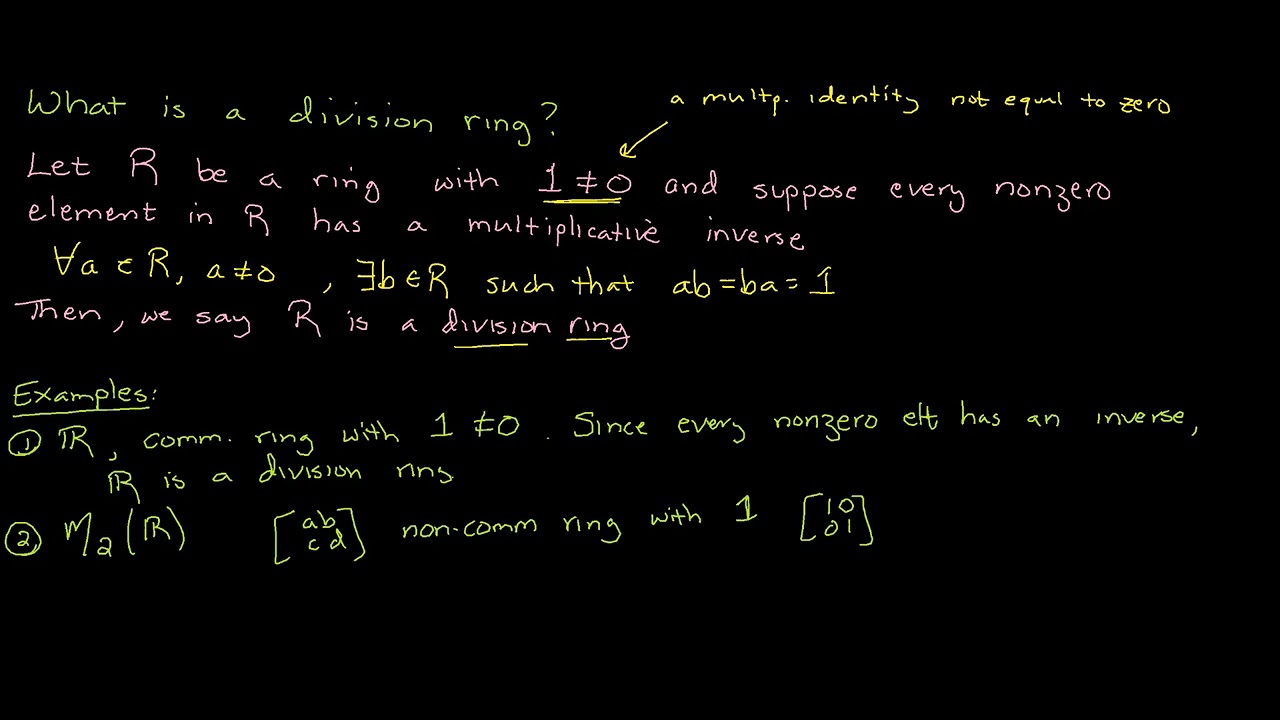 What is a division ring?
a multp. identity not equal to zero
Let R be a ring with 1 ≠ 0 and suppose every nonzero
element in R has a multiplicative inverse
∀a ∈ R, a ≠ 0 , ∃b ∈ R such that ab = ba = 1
Then, we say R is a division ring
Examples:
① ℝ, comm. ring with 1 ≠ 0. Since every nonzero elt has an inverse,
ℝ is a division ring
② M₂(ℝ) [a b c d] non-comm ring with 1 [1 0 0 1]